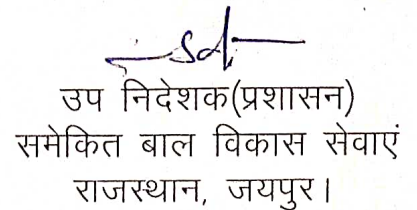 -sd-
उप निदेशक(प्रशासन)
समेकित बाल विकास सेवाएं
राजस्थान, जयपुर।